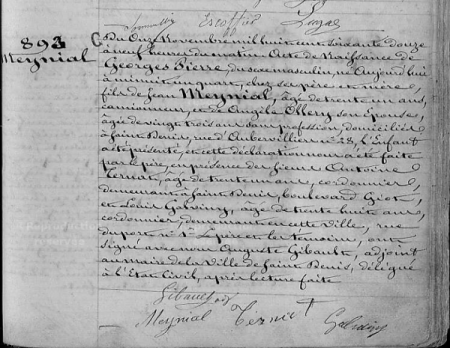 Escoffier
893
Meynial
Du Onze Novembre mil huit cent soixante douze
à neuf heures du matin Acte de Naissance de
Georges Pierre, du sexe masculin, né Aujourd'hui
à minuit un quart, chez ses père et mère,
fils de Jean Meynial, âgé de trente un ans,
camionneur, et de Angèle Ollery son épouse,
âgée de vingt trois ans sans profession, domiciliés
à Saint Denis, rue d'Aubervilliers n° 28, l'Enfant
a été présenté, et cette déclaration nous a été faite
par le père, en présence des sieurs Antoine
âgé de trente un ans, cordonnier,
demeurant à Saint Denis, boulevard
et Louis âgé de trente huit ans,
cordonnier, demeurant en cette Ville, rue
du port n° 1er Le père et les témoins, ont
signé avec nous Auguste Gibault, adjoint
au maire de la Ville de Saint Denis, délégué
à l'Etat Civil, après lecture faite
Gibault adj
Meynial